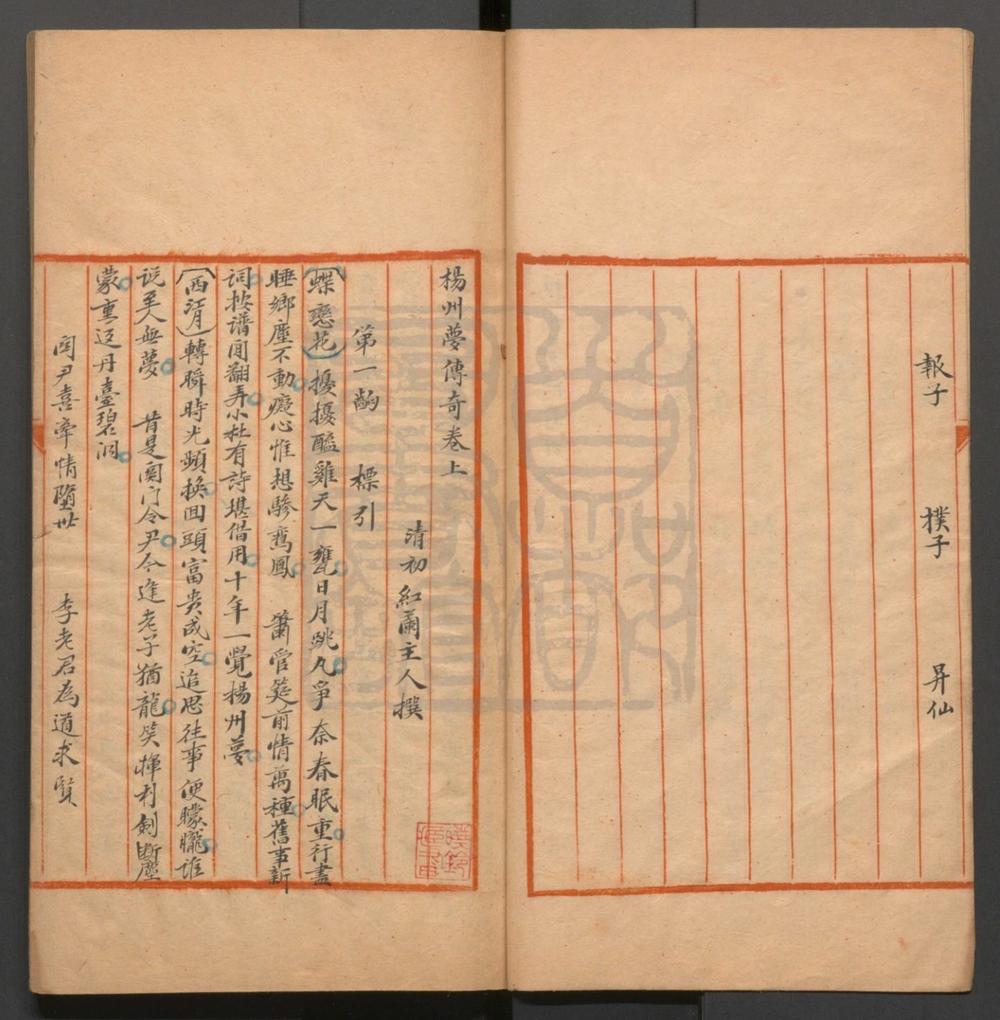 報子　撲子　昇仙
揚州夢傳奇卷上
清初紅蘭主人撰
第一齣　標引
（蝶戀花）擾擾醯雞天一甕日月跳丸爭奈春眠重行盡
睡鄉塵不動癡心惟想驂鸞鳳　簫管筵前情萬種舊事新
詞按譜閒翻弄小杜有詩堪借用十年一覺揚州夢
（西江月）轉瞬時光頻換回頭富貴成空追思往事便朦朧誰
說至人無夢　昔是關門令尹今逢老子猶龍笑揮利劍斷塵
蒙重返丹臺碧洞
関尹喜牽情墮世　李老君為道求賢